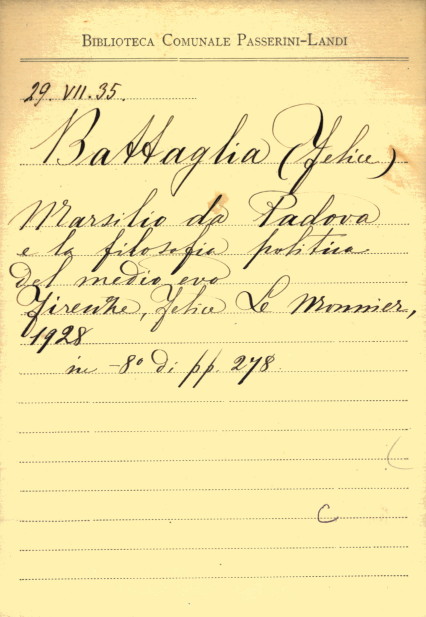 BIBLIOTECA COMUNALE PASSERINI-LANDI
29. VII. 35.
Battaglia (Felice)
Marsilio da Padova
e la filosofia politica
del medio evo
Firenze, Felice Le Monnier,
1928
in -8° di pp. 278
C